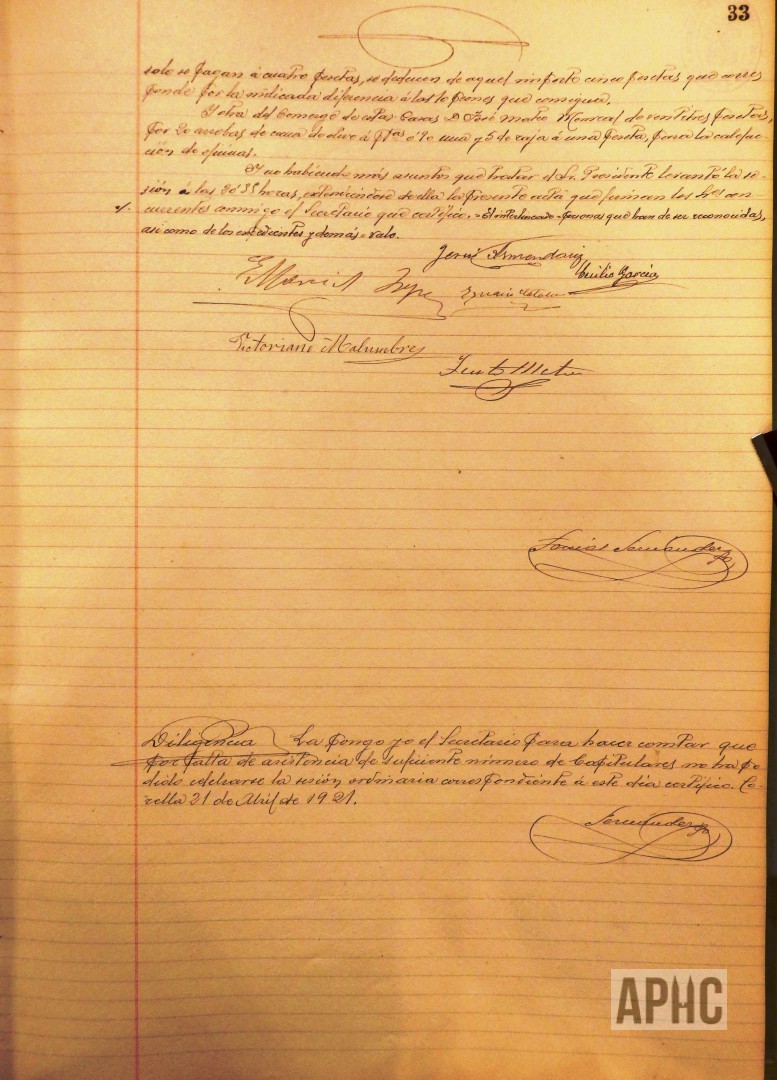 33
solo se pagan á cuatro pesetas, se deducen de aquel importe cinco pesetas que corres
ponde por la indicada diferencia á los peones que consigna.
Y otra del Comercio de estas Casas D. José María Monreal de pesetas,
por 20 arrobas de de olivo á una y 5 de á una peseta, para la calefac
ción de oficinas.
Y no habiendo más asuntos que tratar el Sr. Presidente levantó la se-
sión á las 20'35 horas, extendiéndose de ella la presente acta que firman los Sres con-
currentes conmigo el Secretario que certifico.=El interlineado=personas que han de ser reconocidas,
así como de los expedientes y demás=vale.
Jesús Armendariz
Emilio García
Victoriano Malumbres
Diligencia La pongo yo el Secretario para hacer constar que
por falta de asistencia de suficiente número de Capitulares no ha po
dido celebrarse la sesión ordinaria correspondiente á este día certifico. Co-
rella 21 de Abril de 1921.
APHC